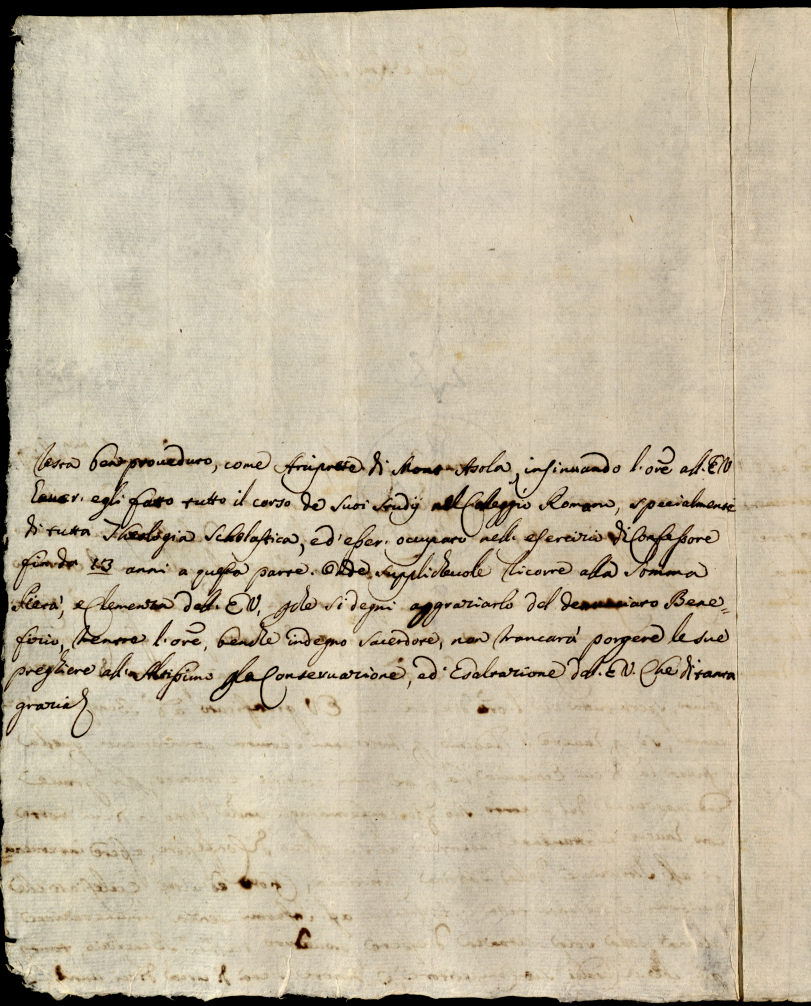 resta ben proveduto, come Arciprete di Mont Asola, insinuando l'ore all' EV
haver egli fatto tutto il corso de suoi studij nel Collegio Romano, specialmente
di tutta Theologia Scholastica, ed' esser occupato nell' esercizio di Confessore
fin da anni a questa parte. Onde supplichevole ricorre alla somma
Pietà, e Clemenza dell' EV, si degni aggraziarlo del denunciato Bene=
ficio, mentre l'ore, benche indegno sacerdote, non mancarà porgere le sue
preghiere all' Altissimo p la Conservazione, ed' Esaltazione dell' EV. Che di tanta
grazia